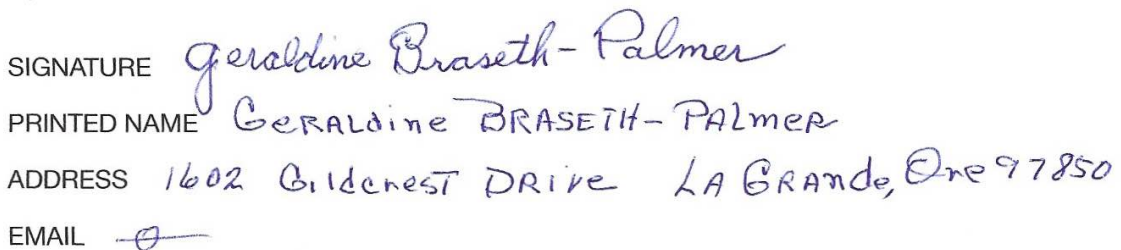 SIGNATURE Geraldine Braseth-Palmer
PRINTED NAME GeRALdine BRASETH-PALmeR
ADDRESS 1602 GildcresT DRive LA GRANde, Ore 97850
EMAIL